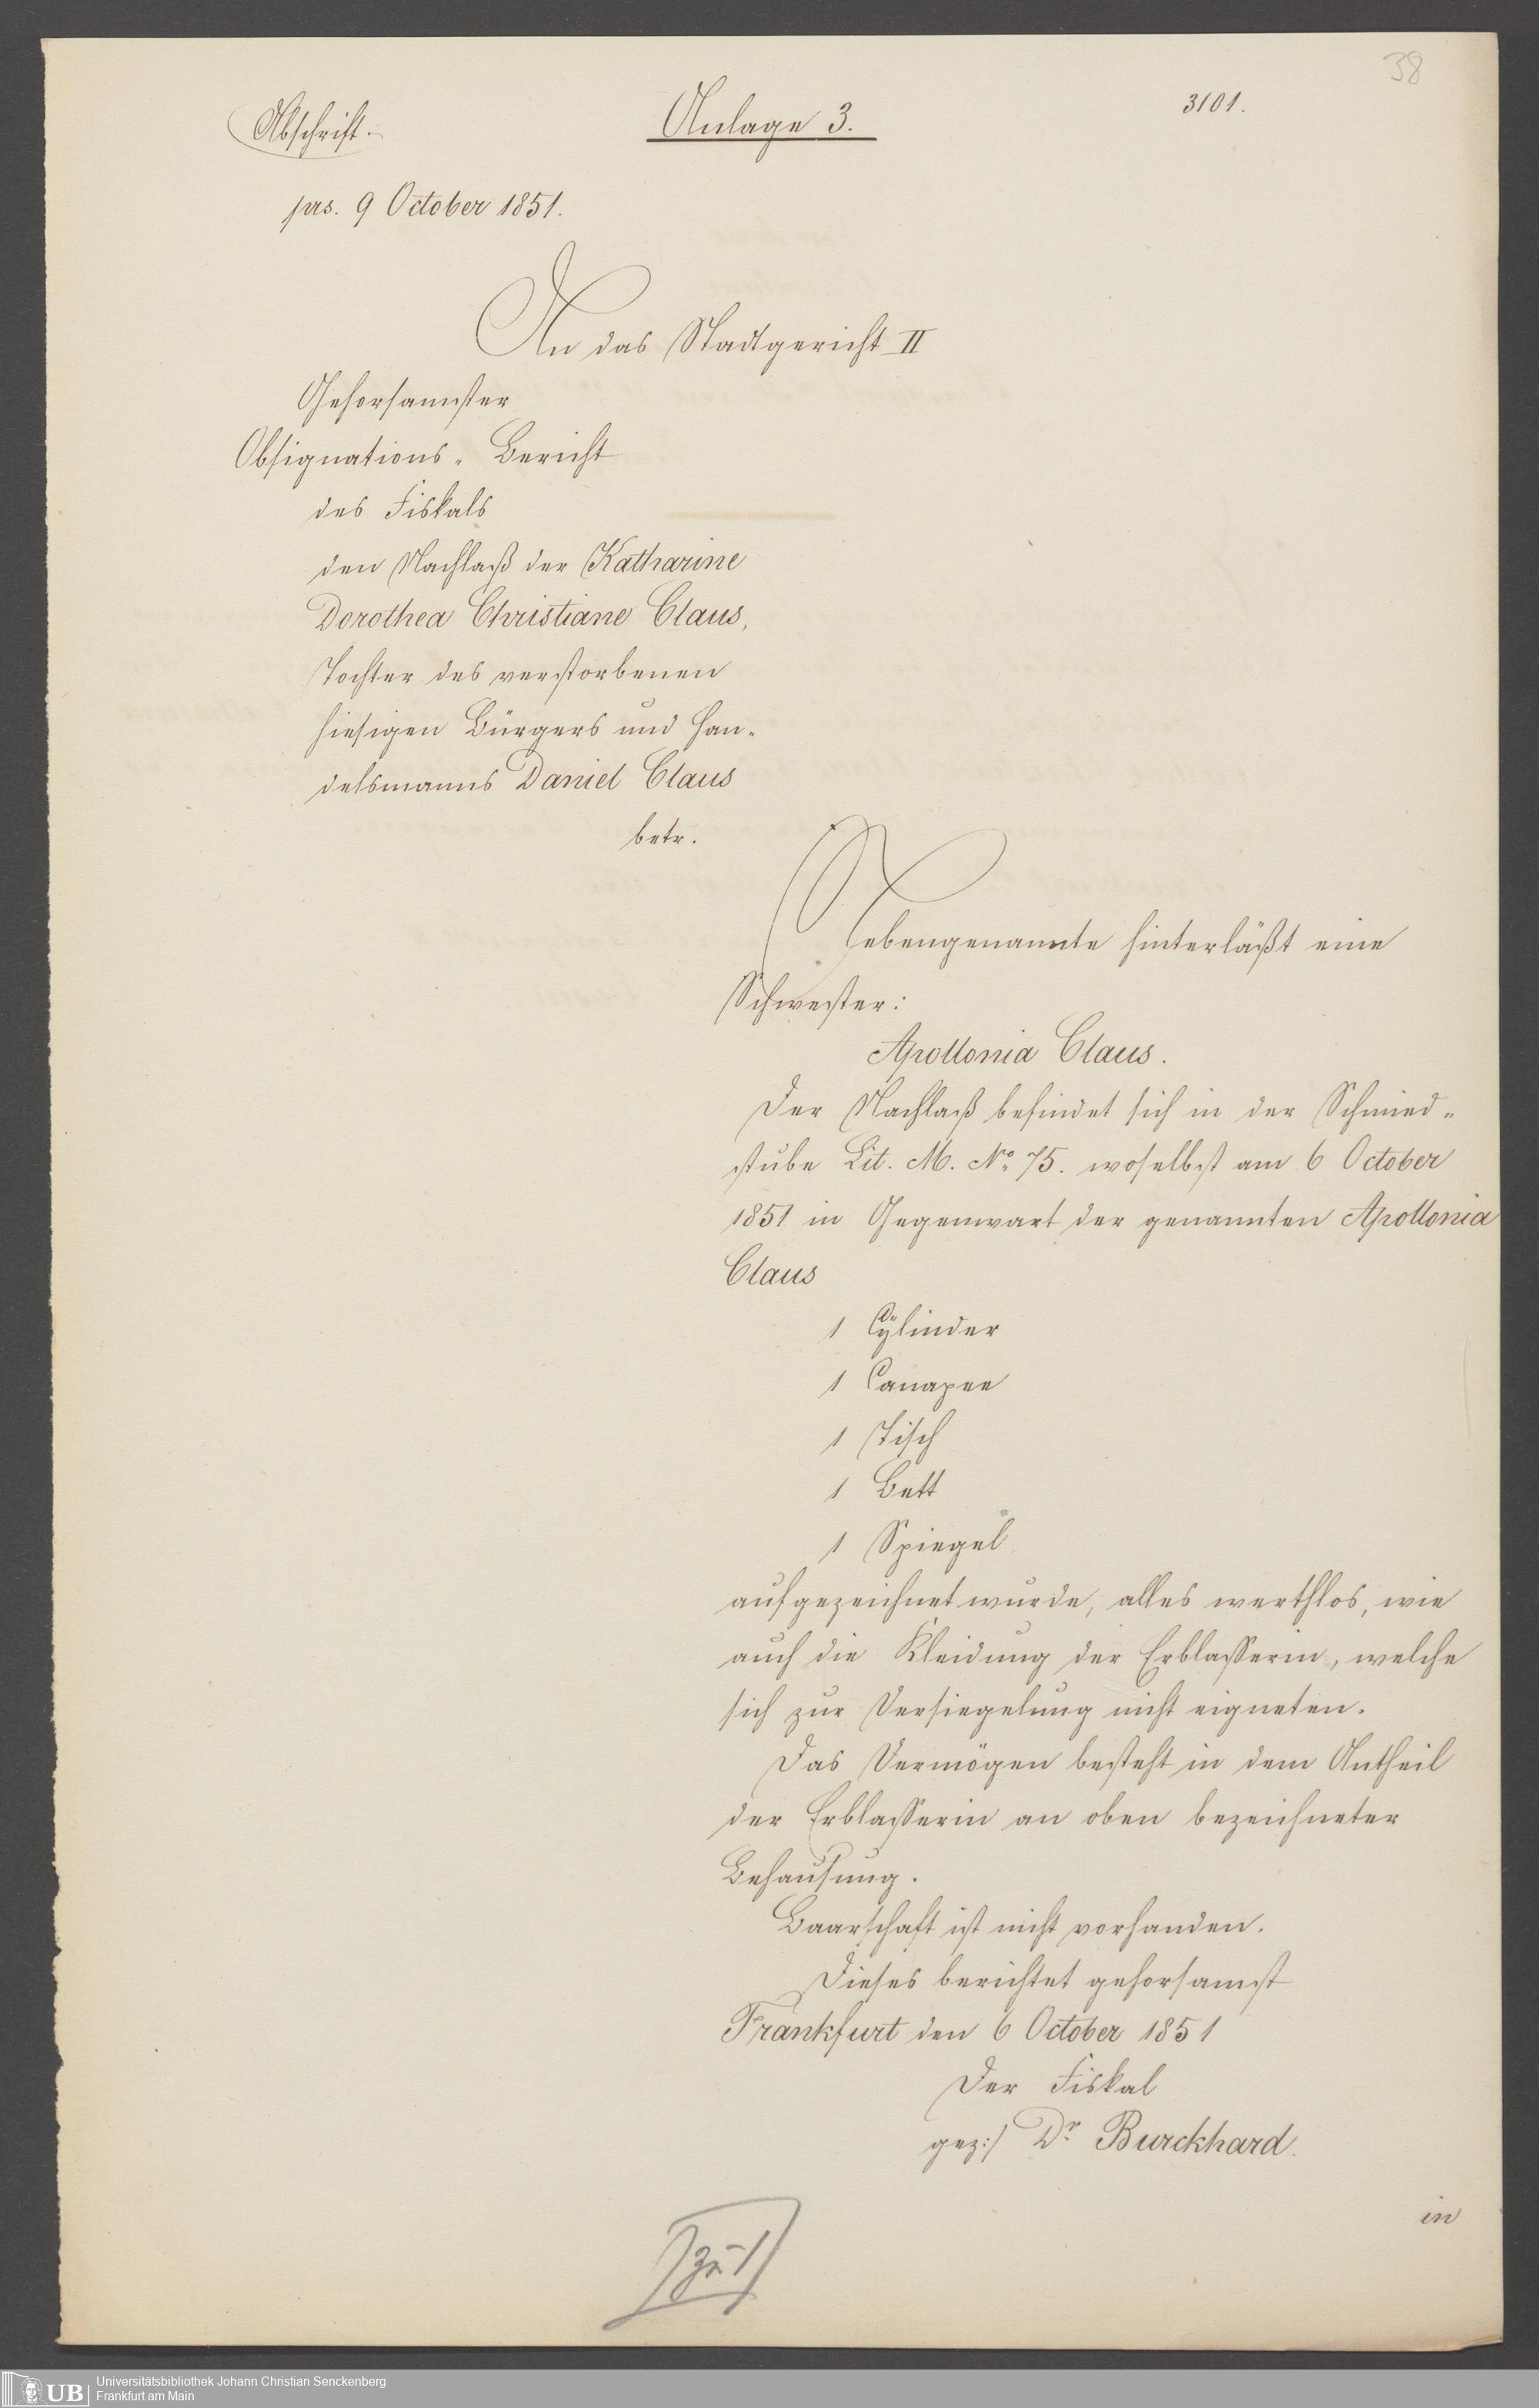 38
3101.
Abschrift.
Anlage 3.
prs. 9 October 1851.
An das Stadtgericht II
Gehorsamster
Obsignations-Bericht
des Fiskals
den Nachlaß der Katharine
Dorothea Christiane Claus,
Tochter des verstorbenen
hiesigen Bürgers und Han-
delsmanns Daniel Claus
betr.
Nebengenannte hinterläßt eine
Schwester:
Apollonia Claus.
Der Nachlaß befindet sich in der Schmied-
stube Lit. M. No. 75. woselbst am 6 October
1851 in Gegenwart der genannten Apollonia
Claus
1 Cÿlinder
1 Canapee
1 Tisch
1 Bett
1 Spiegel
aufgezeichnet wurde, alles werthlos, wie
auch die Kleidung der Erblasserin, welche
sich zur Versiegelung nicht eigneten.
Das Vermögen besteht in dem Antheil
der Erblasserin an oben bezeichneter
Behausung.
Baarschaft ist nicht vorhanden.
Dieses berichtet gehorsamst
Frankfurt den 6 October 1851
Der Fiskal
gez:/ Dr. Burckhard.
in
zu 1
UB
Universitätsbibliothek Johann Christian Senckenberg
Frankfurt am Main